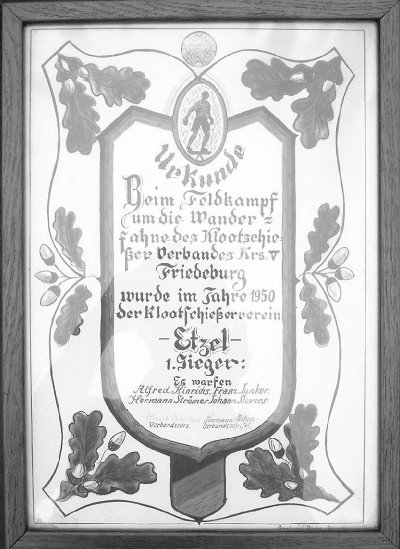 Urkunde
Beim Feldkampf
um die Wander=
fahne des Klootschie=
ßer Verbandes Krs. V
Friedeburg
wurde im Jahre 1950
der Klootschießerverein
- Etzel -
1. Sieger:
Es warfen
Alfred Hinrichs, Franz Junker,
Hermann Strömer, Johann Sievers
Verbandsvors. Verbandsschriftf.